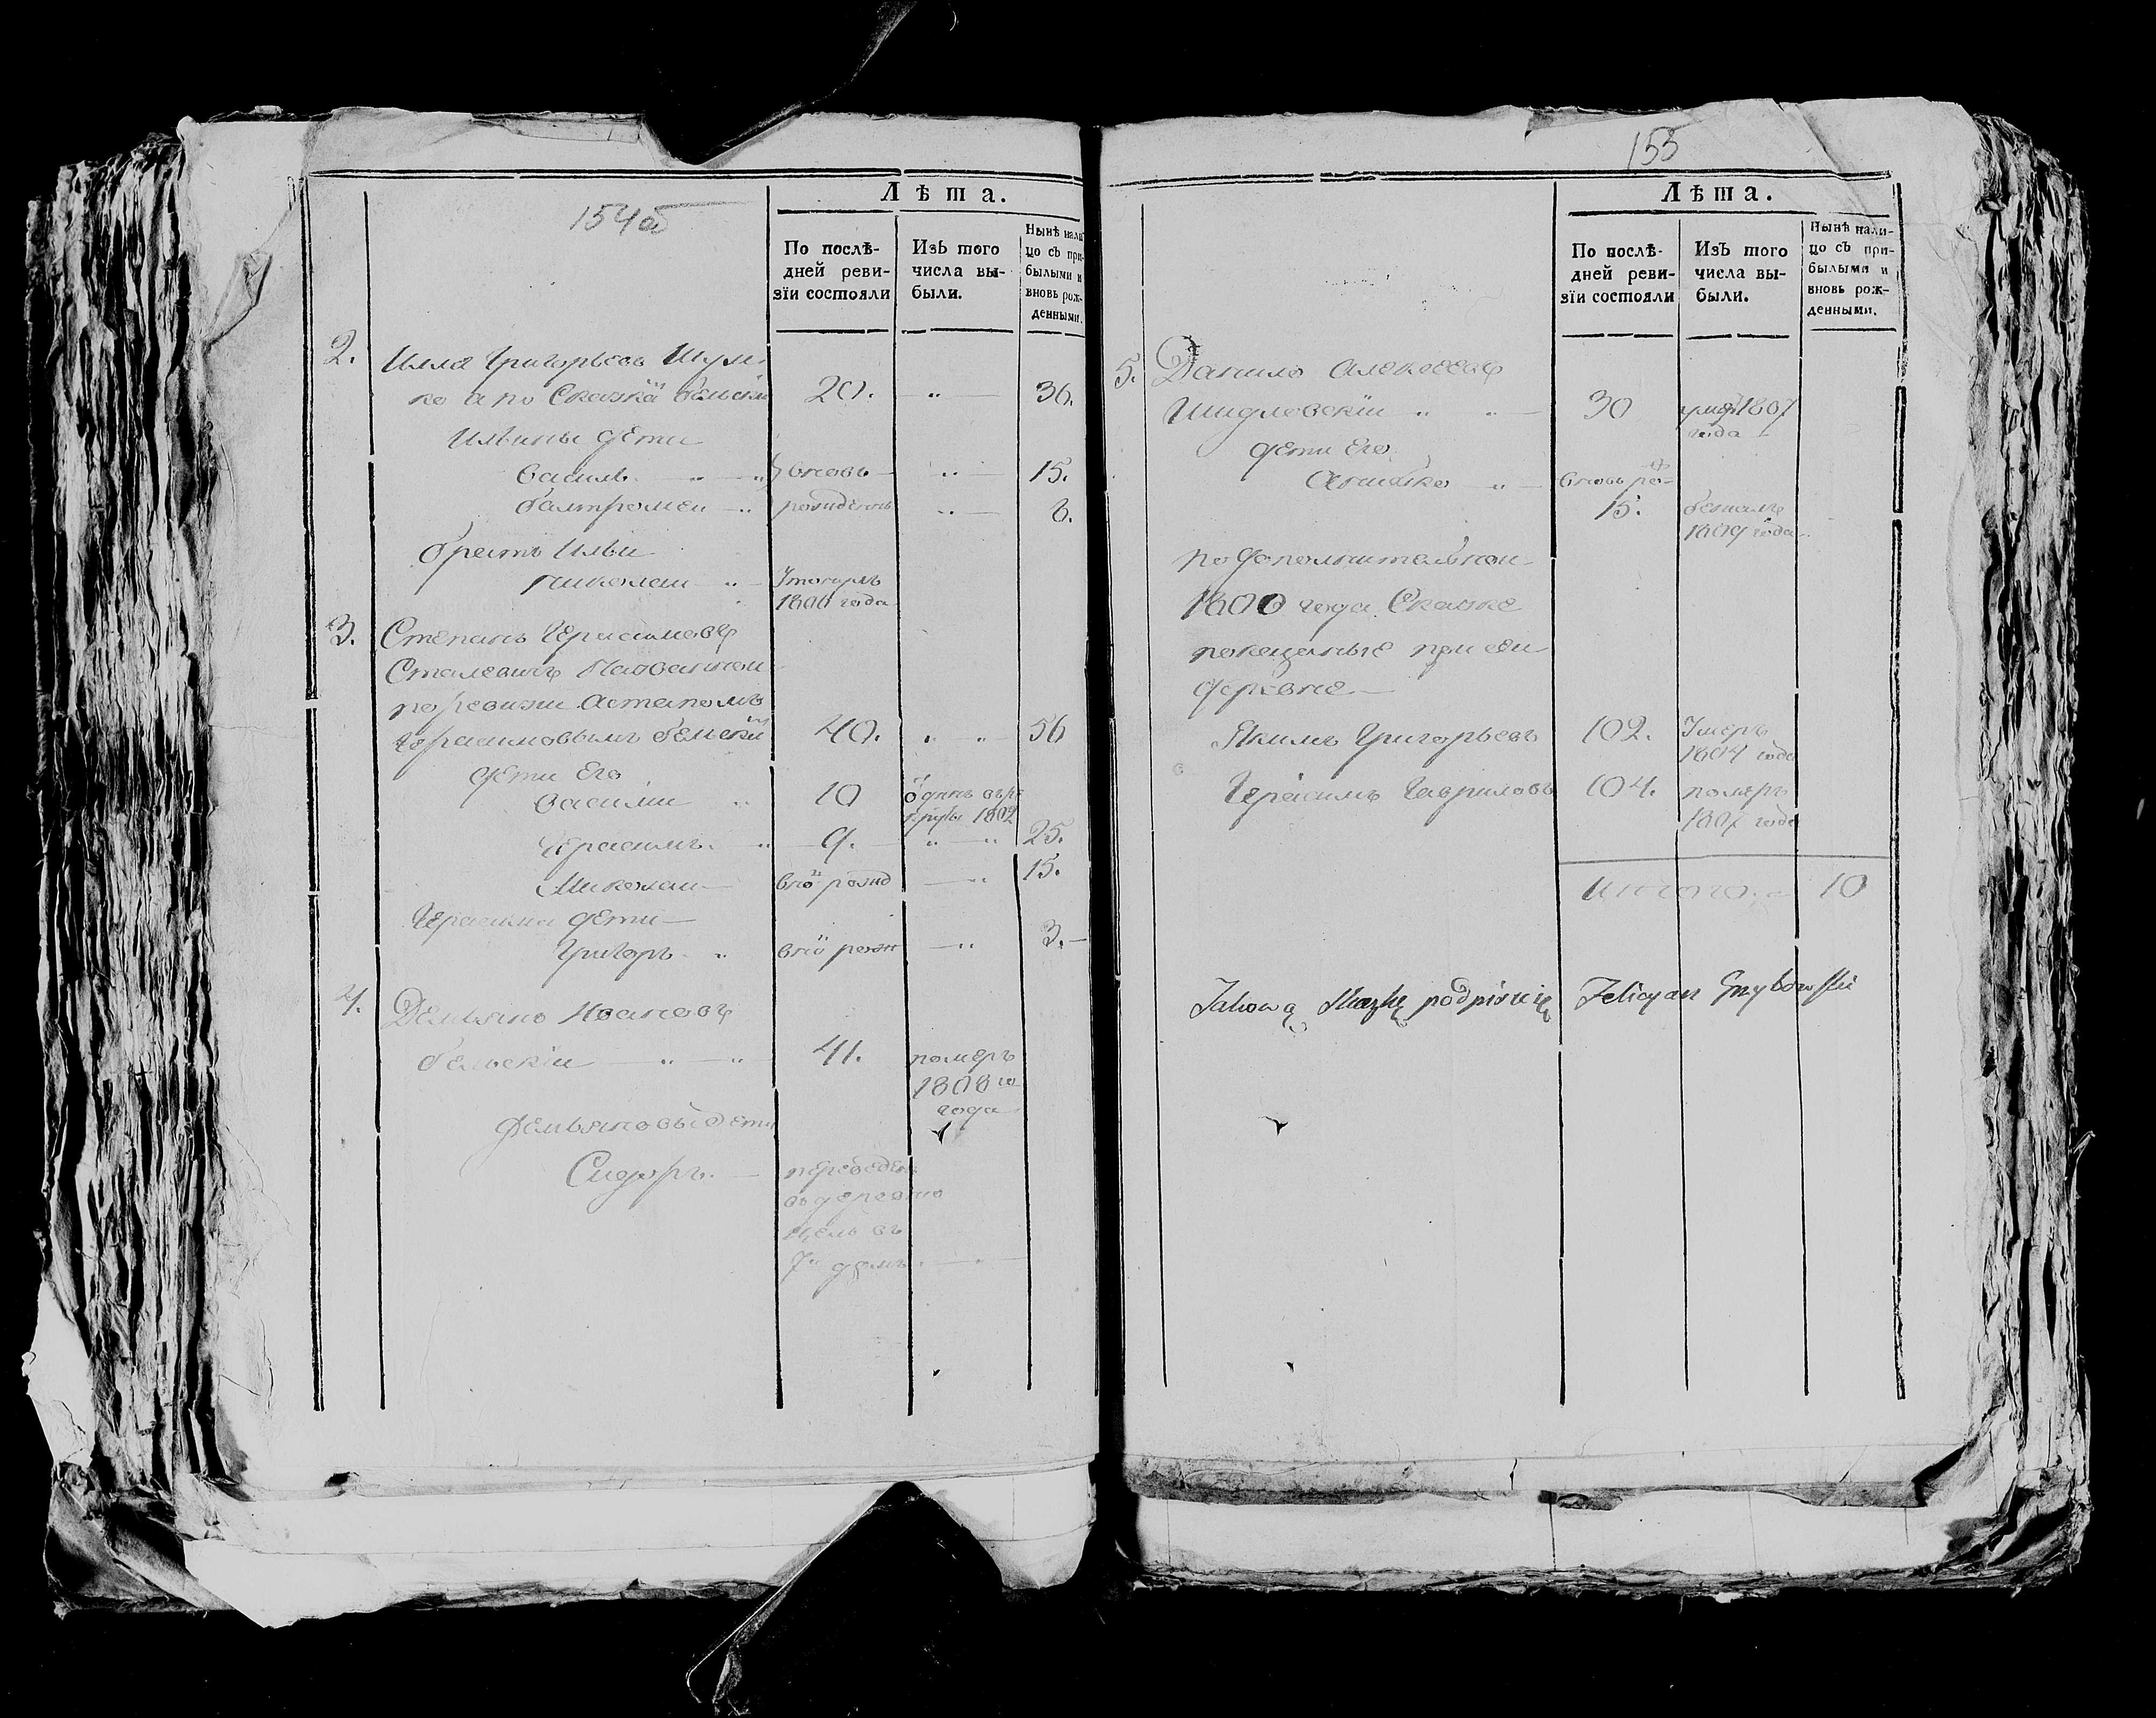 154об
Лѣта.
По послѣ-
дней реви-
зїи состояли
Изъ того
числа вы-
были.
Нынѣ нали
цо съ при-
былыми и
вновь рож-
денными.
2. Илла Григорьевъ Шум
ко а по Сказкӑ бельскій 20. " 36.
Ильины дети
Василь " вновь " 15.
балтромеи " рожденъ " 8.
братъ Ильи
Николаи " Умогръ
1806 года
3. Степанъ Герасимовъ
Сталевичъ Названнои
по ревизии Астапомъ
Герасимовымъ бельскій 40. " " 56
дети Его
Василии " 10 отданъ въ ре
круты 1802
Герасимъ " 9. " " 25.
Миколаи внӧ рожд " 15.
Герасима дети
Григоръ " внӧ рожд " 3.
4. Демьянъ Ивановъ
бельскіи " " 41. померъ
1808 го
года
Демьяновы дети
Сидоръ. переведенъ
въ деревню
въ
7й домъ
155
Лѣта.
По послѣ-
дней реви-
зїи состояли
Изъ того
числа вы-
были.
Нынѣ нали-
цо съ при-
былыми и
вновь рож-
денными.
5. Данило Алексеевъ
Шидловскіи " " 30 умеръ 1807
года
дети Его
" вновь ро
15. бежалъ
1809 года
по дополнительнои
1800 года Сказке
показаные при сеи
деревне
Якимъ Григорьевъ 102. Умеръ
1804 года
Герасимъ Гавриловъ 104. померъ
1807 года
Итого. 10
Takową skazkę podpisuię Felicyan Grzybowski